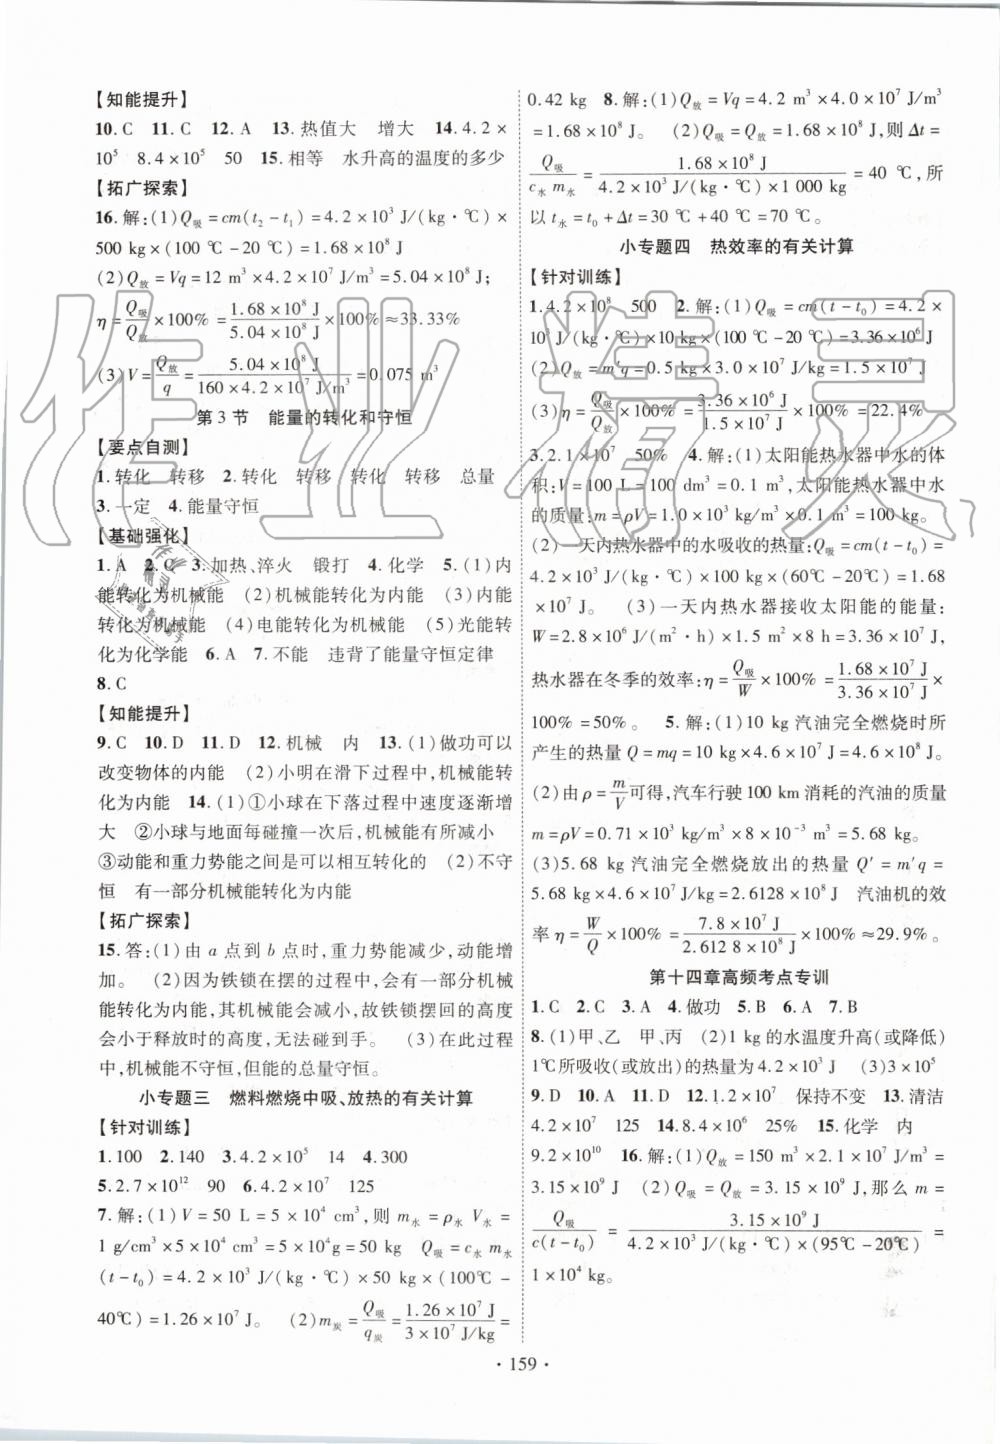 【知能提升】
10.C 11.C 12.A 13.热值大 增大 14.4.2×
10⁵ 8.4×10⁵ 50 15.相等 水升高的温度的多少
【拓广探索】
16.解:(1)Q吸=cm(t₂-t₁)=4.2×10³ J/(kg·℃)×
500 kg×(100 ℃-20 ℃)=1.68×10⁸ J
(2)Q放=Vq=12 m³×4.2×10⁷ J/m³=5.04×10⁸ J;
η=Q吸/Q放×100%=1.68×10⁸ J/5.04×10⁸ J×100%≈33.33%
(3)V=Q放/q=5.04×10⁸ J/160×4.2×10⁷ J/m³=0.075 m³
第3节 能量的转化和守恒
【要点自测】
1.转化 转移 2.转化 转移 转化 转移 总量
3.一定 4.能量守恒
【基础强化】
1.A 2.C 3.加热、淬火 锻打 4.化学 5.(1)内
能转化为机械能 (2)机械能转化为内能 (3)内能
转化为机械能 (4)电能转化为机械能 (5)光能转
化为化学能 6.A 7.不能 违背了能量守恒定律
8.C
【知能提升】
9.C 10.D 11.D 12.机械 内 13.(1)做功可以
改变物体的内能 (2)小明在滑下过程中,机械能转
化为内能 14.(1)①小球在下落过程中速度逐渐增
大 ②小球与地面每碰撞一次后,机械能有所减小
③动能和重力势能之间是可以相互转化的 (2)不守
恒 有一部分机械能转化为内能
【拓广探索】
15.答:(1)由 a 点到 b 点时,重力势能减少,动能增
加。 (2)因为铁锁在摆的过程中,会有一部分机械
能转化为内能,其机械能会减小,故铁锁摆回的高度
会小于释放时的高度,无法碰到手。 (3)在此过程
中,机械能不守恒,但能的总量守恒。
小专题三 燃料燃烧中吸、放热的有关计算
【针对训练】
1.100 2.140 3.4.2×10⁵ 14 4.300
5.2.7×10¹² 90 6.4.2×10⁷ 125
7.解:(1)V=50 L=5×10⁴ cm³,则 m水=ρ水 V水=
1 g/cm³×5×10⁴ cm³=5×10⁴g=50 kg Q吸=c水m水
(t-t₀)=4.2×10³ J/(kg·℃)×50 kg×(100℃-
40℃)=1.26×10⁷ J。 (2)m炭=Q吸/q炭=1.26×10⁷ J/3×10⁷ J/kg=
0.42 kg 8.解:(1)Q放=Vq=4.2 m³×4.0×10⁷ J/m³
=1.68×10⁸ J。 (2)Q吸=Q放=1.68×10⁸ J,则Δt=
Q吸/c水m水=1.68×10⁸ J/4.2×10³ J/(kg·℃)×1 000 kg=40 ℃,所
以 t水=t₀+Δt=30 ℃+40 ℃=70 ℃。
小专题四 热效率的有关计算
【针对训练】
1.4.2×10⁸ 500 2.解:(1)Q吸=cm(t-t₀)=4.2×
10³ J/(kg·℃)×10 kg×(100 ℃-20 ℃)=3.36×10⁶ J
(2)Q放=m′q=0.5 kg×3.0×10⁷ J/kg=1.5×10⁷ J
(3)η=Q吸/Q放×100%=3.36×10⁶ J/1.5×10⁷ J×100%=22.4%
3.2.1×10⁷ 50% 4.解:(1)太阳能热水器中水的体
积:V=100 L=100 dm³=0.1 m³,太阳能热水器中水
的质量:m=ρV=1.0×10³ kg/m³×0.1 m³=100 kg。
(2)一天内热水器中的水吸收的热量:Q吸=cm(t-t₀)=
4.2×10³ J/(kg·℃)×100 kg×(60℃-20℃)=1.68
×10⁷ J。 (3)一天内热水器接收太阳能的能量:
W=2.8×10⁶ J/(m²·h)×1.5 m²×8 h=3.36×10⁷ J,
热水器在冬季的效率:η=Q吸/W×100%=1.68×10⁷ J/3.36×10⁷ J×
100%=50%。 5.解:(1)10 kg 汽油完全燃烧时所
产生的热量 Q=mq=10 kg×4.6×10⁷ J=4.6×10⁸ J。
(2)由ρ=m/V可得,汽车行驶100 km消耗的汽油的质量
m=ρV=0.71×10³ kg/m³×8×10⁻³ m³=5.68 kg。
(3)5.68 kg 汽油完全燃烧放出的热量 Q′=m′q=
5.68 kg×4.6×10⁷ J/kg=2.6128×10⁸ J 汽油机的效
率η=W/Q×100%=7.8×10⁷ J/2.612 8×10⁸ J×100%≈29.9%。
第十四章高频考点专训
1.C 2.C 3.A 4.做功 5.B 6.A 7.B
8.(1)甲、乙 甲、丙 (2)1 kg的水温度升高(或降低)
1℃所吸收(或放出)的热量为4.2×10³ J (3)3×10⁵
9.D 10.A 11.D 12.1×10⁷ 保持不变 13.清洁
4.2×10⁷ 125 14.8.4×10⁶ 25% 15.化学 内
9.2×10¹⁰ 16.解:(1)Q放=150 m³×2.1×10⁷ J/m³=
3.15×10⁹ J (2)Q吸=Q放=3.15×10⁹ J,那么 m=
Q吸/c(t-t₀)=3.15×10⁹ J/4.2×10³ J/(kg·℃)×(95℃-20℃)=
1×10⁴ kg。
·159·
作业精灵